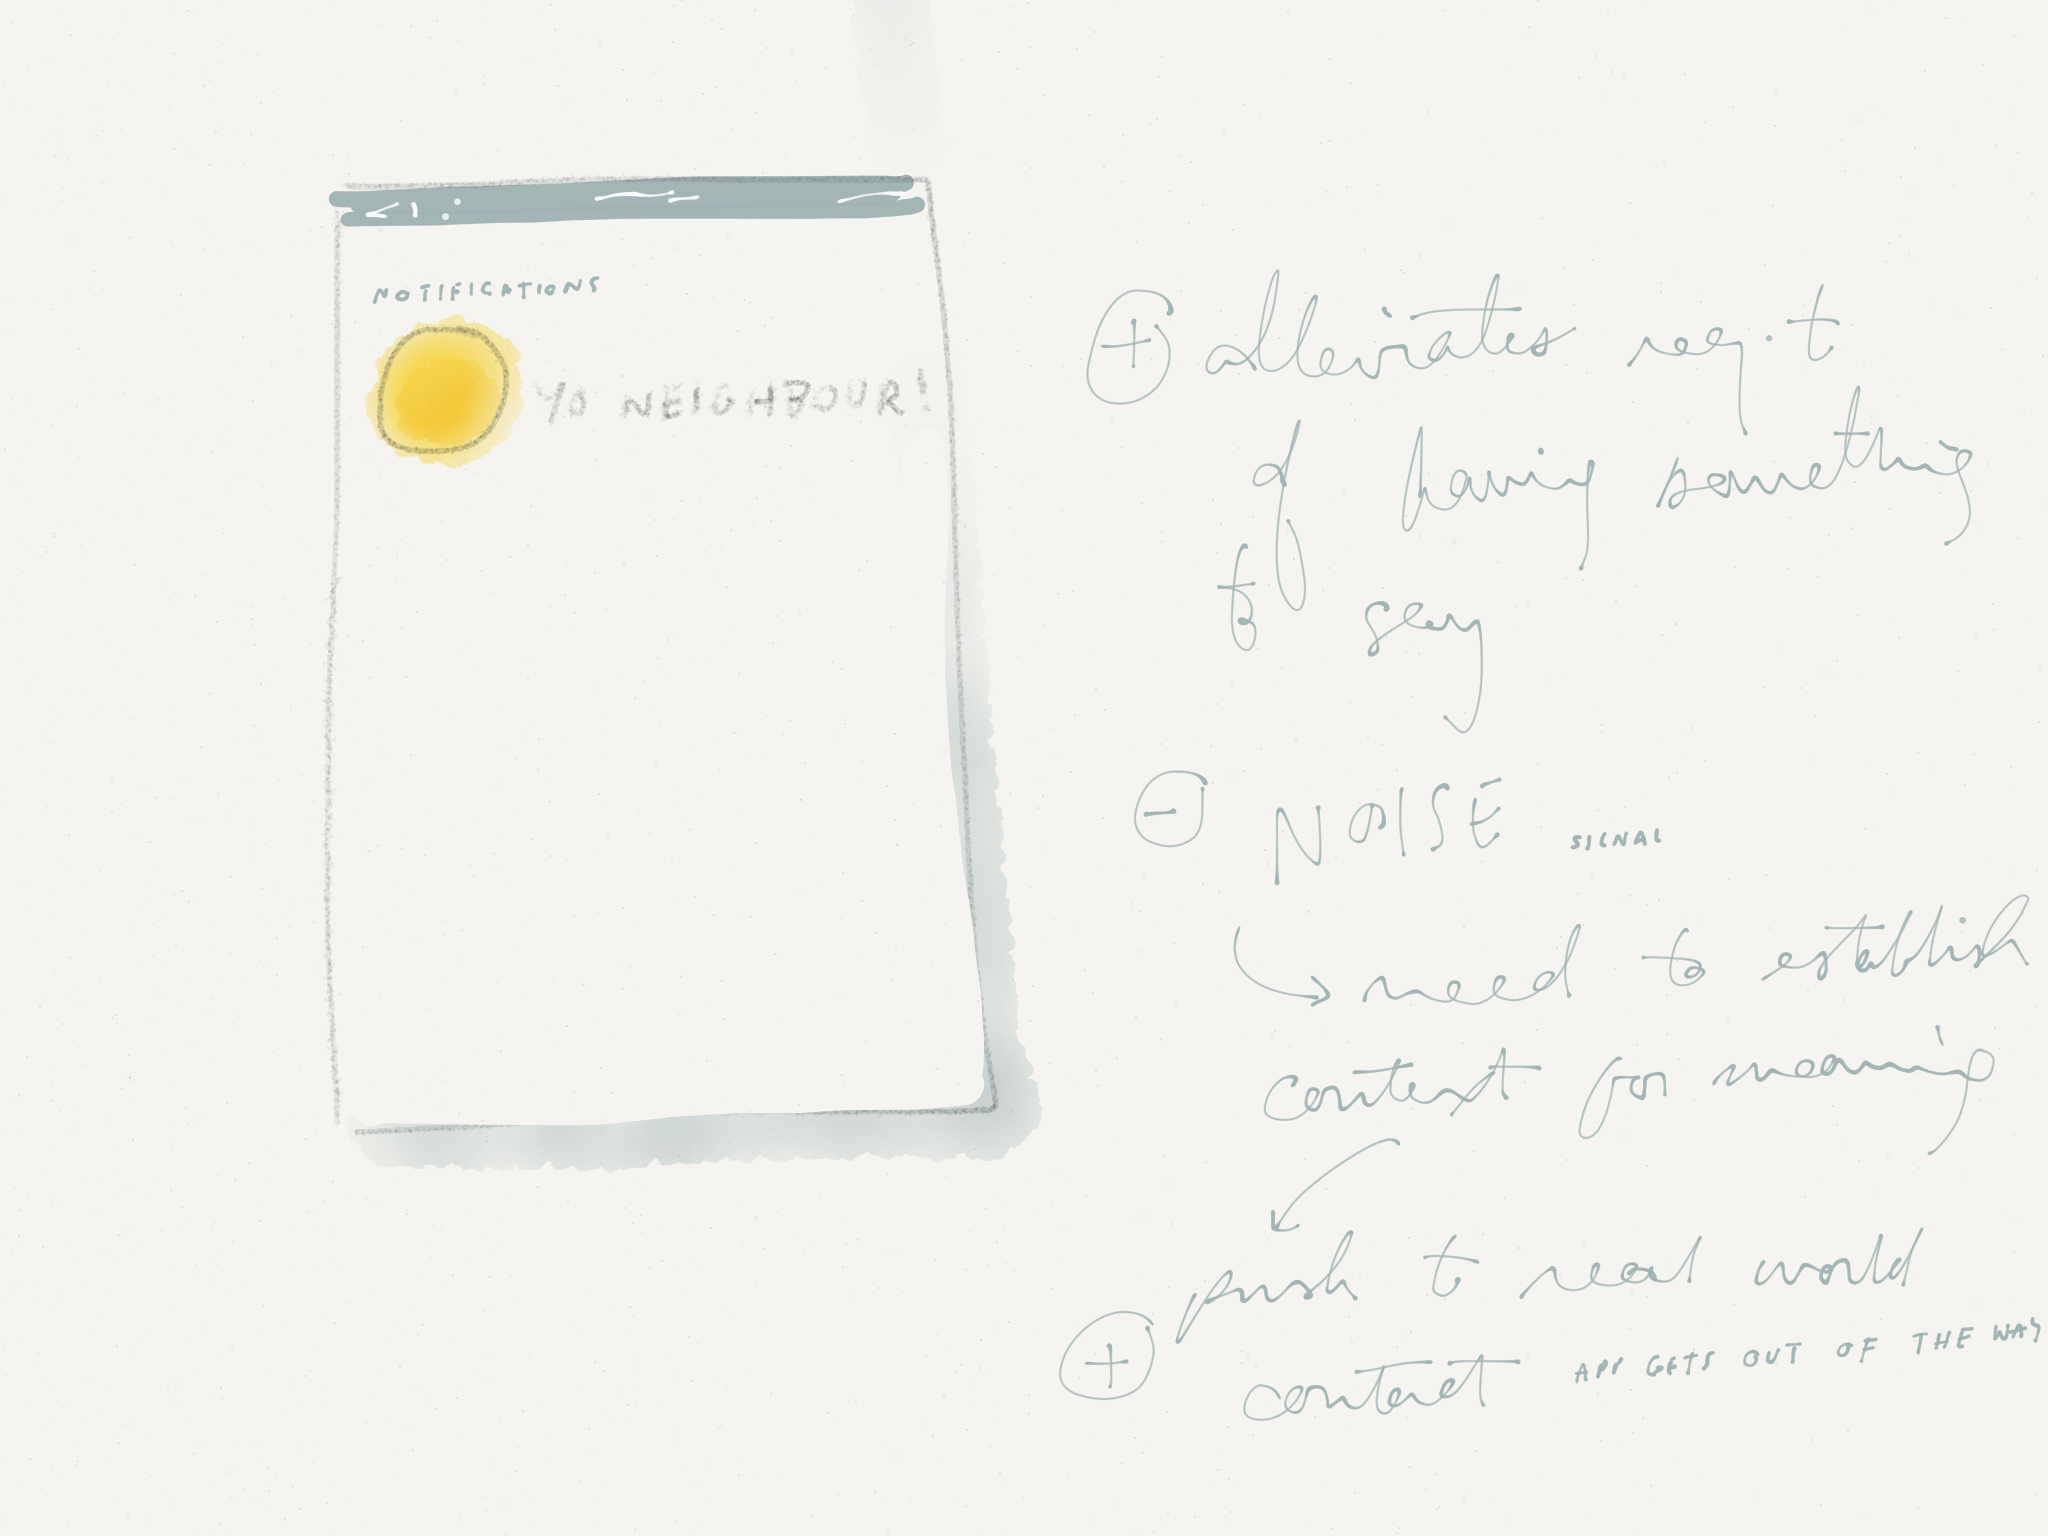 NOTIFICATIONS
YO NEIGHBOUR!
+ alleviates req.t
of having something
to say
- NOISE SIGNAL
→ need to establish
context for meaning
push to real world
+ contact APP GETS OUT OF THE WAY